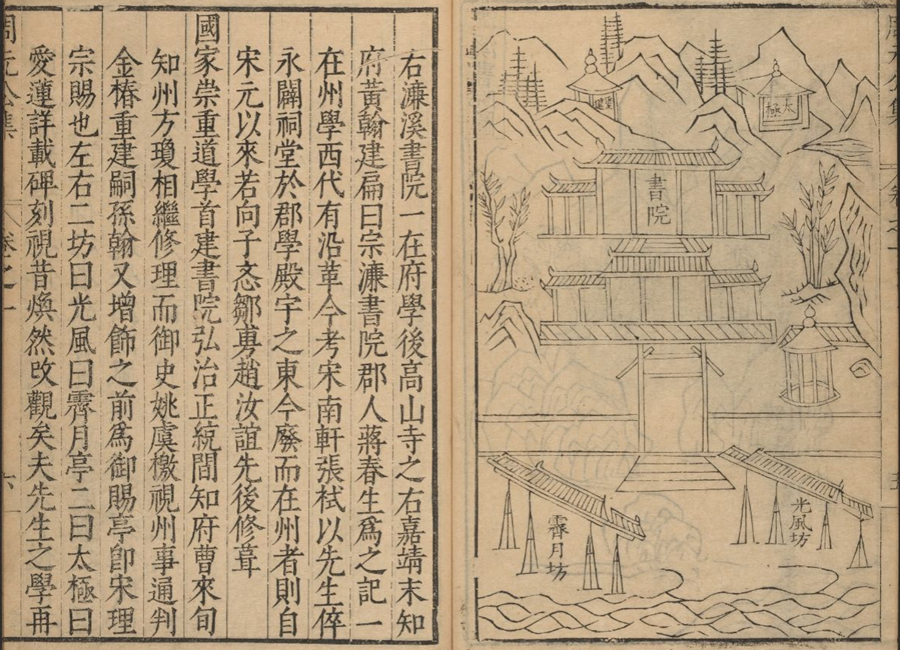 太極
書院
光風坊
霽月坊
右濂溪書院一在府學後高山寺之右嘉靖末知
府黃翰建扁曰宗濂書院郡人蔣春生爲之記一
在州學西代有沿革今考宋南軒張栻以先生倅
永闢祠堂於郡學殿宇之東今廢而在州者則自
宋元以來若向子忞鄒旉趙汝誼先後修葺
國家崇重道學首建書院弘治正統間知府曹來旬
知州方瓊相繼修理而御史姚虞檄視州事通判
金椿重建嗣孫翰又增飾之前爲御賜亭卽宋理
宗賜也左右二坊曰光風曰霽月亭二曰太極曰
愛蓮詳載碑刻視昔煥然改觀矣夫先生之學再
周元公集 卷之一 六